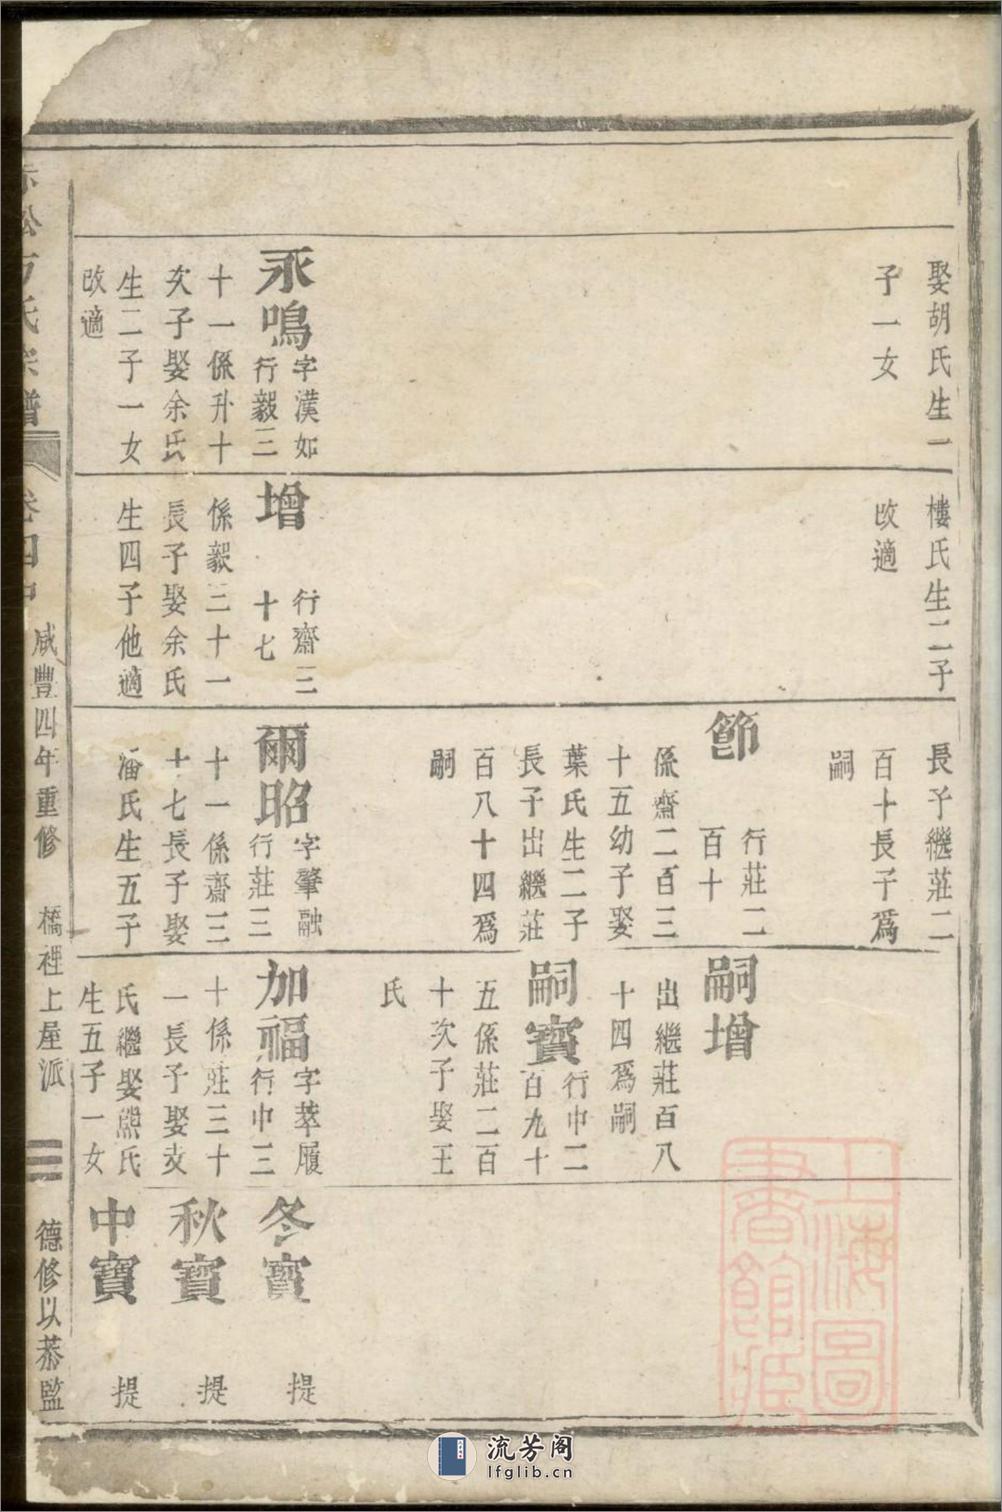 娶胡氏生一
子一女
永鳴
字漢如
行毅三
十一係升十
次子娶余氏
生二子一女
改適
樓氏生二子
改適
增
行齋三
十七
係毅三十一
長子娶余氏
生四子他適
長子繼莊二
百十長子爲
嗣
節
行莊二
百十
係齋二百三
十五幼子娶
葉氏生二子
長子出繼莊
百八十四爲
嗣
爾昭
字肇融
行莊三
十一係齋三
十七長子娶
潘氏生五子
嗣增
出繼莊百八
十四爲嗣
嗣寶
行中二
百九十
五係莊二百
十次子娶王
氏
加福
字萃履
行中三
十係莊三十
一長子娶支
氏繼娶熙氏
生五子一女
冬寶
提
秋寶
提
中寶
提
松方氏宗譜
卷四中
咸豐四年重修
橋裡上屋派
三
德修以恭監
上海圖書館藏
流芳阁
lfglib.cn